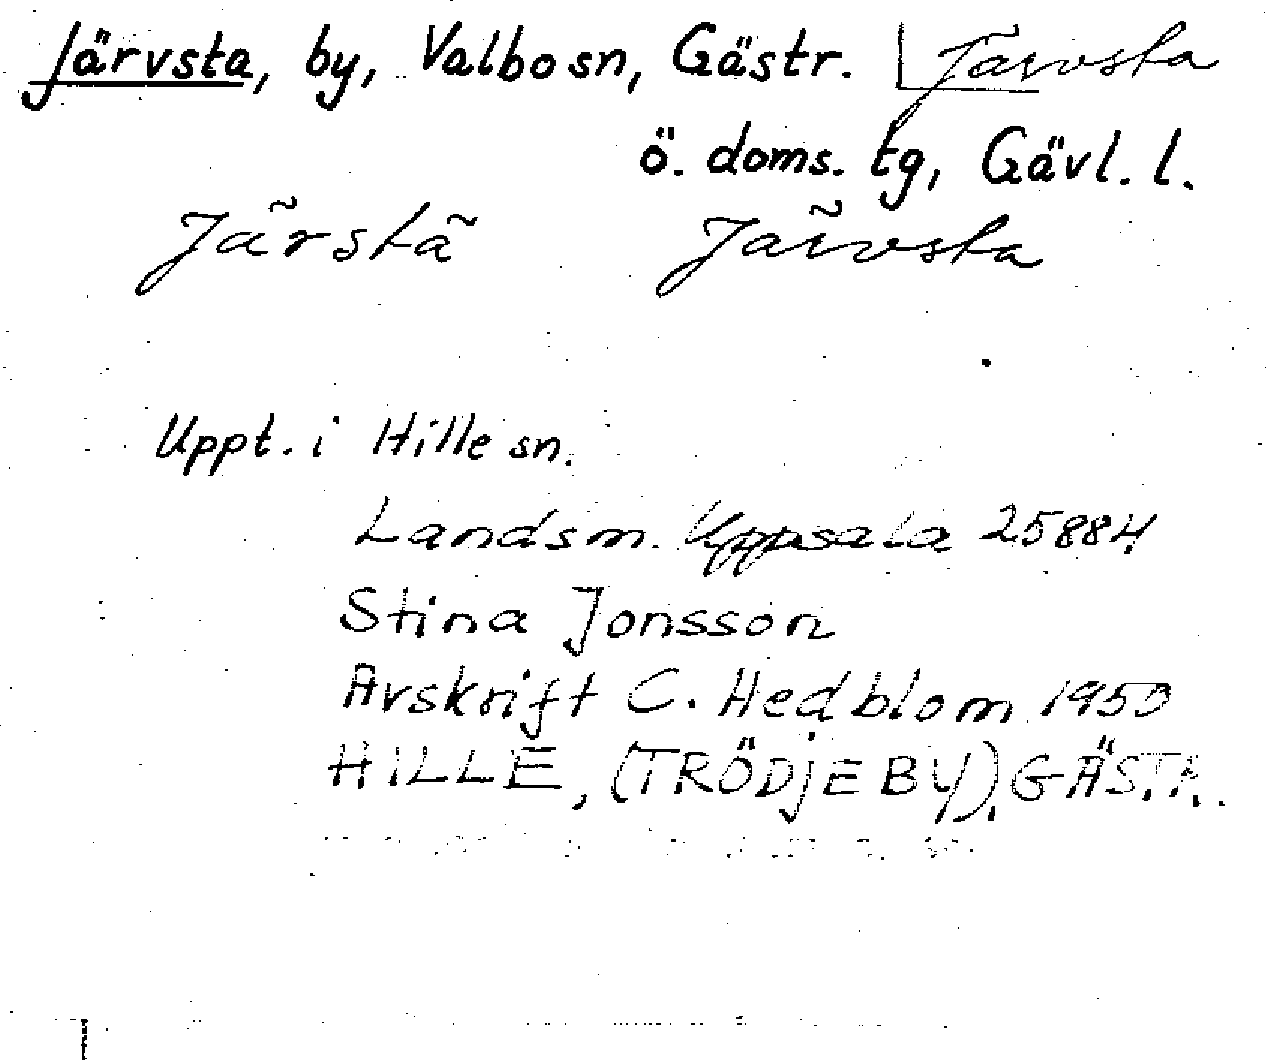 Järvsta, by, Valbo sn, Gästr. Järvsta
ö. doms. tg, Gävl. l.
Jãrstã Järvsta
Uppt. i Hille sn.
Landsm. Uppsala 25884
Stina Jonsson
Avskrift C. Hedblom 1950
HILLE, (TRÖDJE BY). GÄSTR.